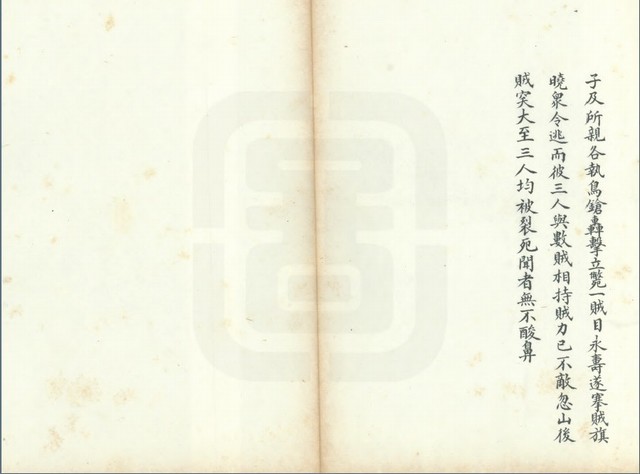 子及所親各執鳥鎗轟擊立斃一賊目永壽遂搴賊旗
曉衆令逃而彼三人與數賊相持賊力已不敵忽山後
賊突大至三人均被裂死聞者無不酸鼻